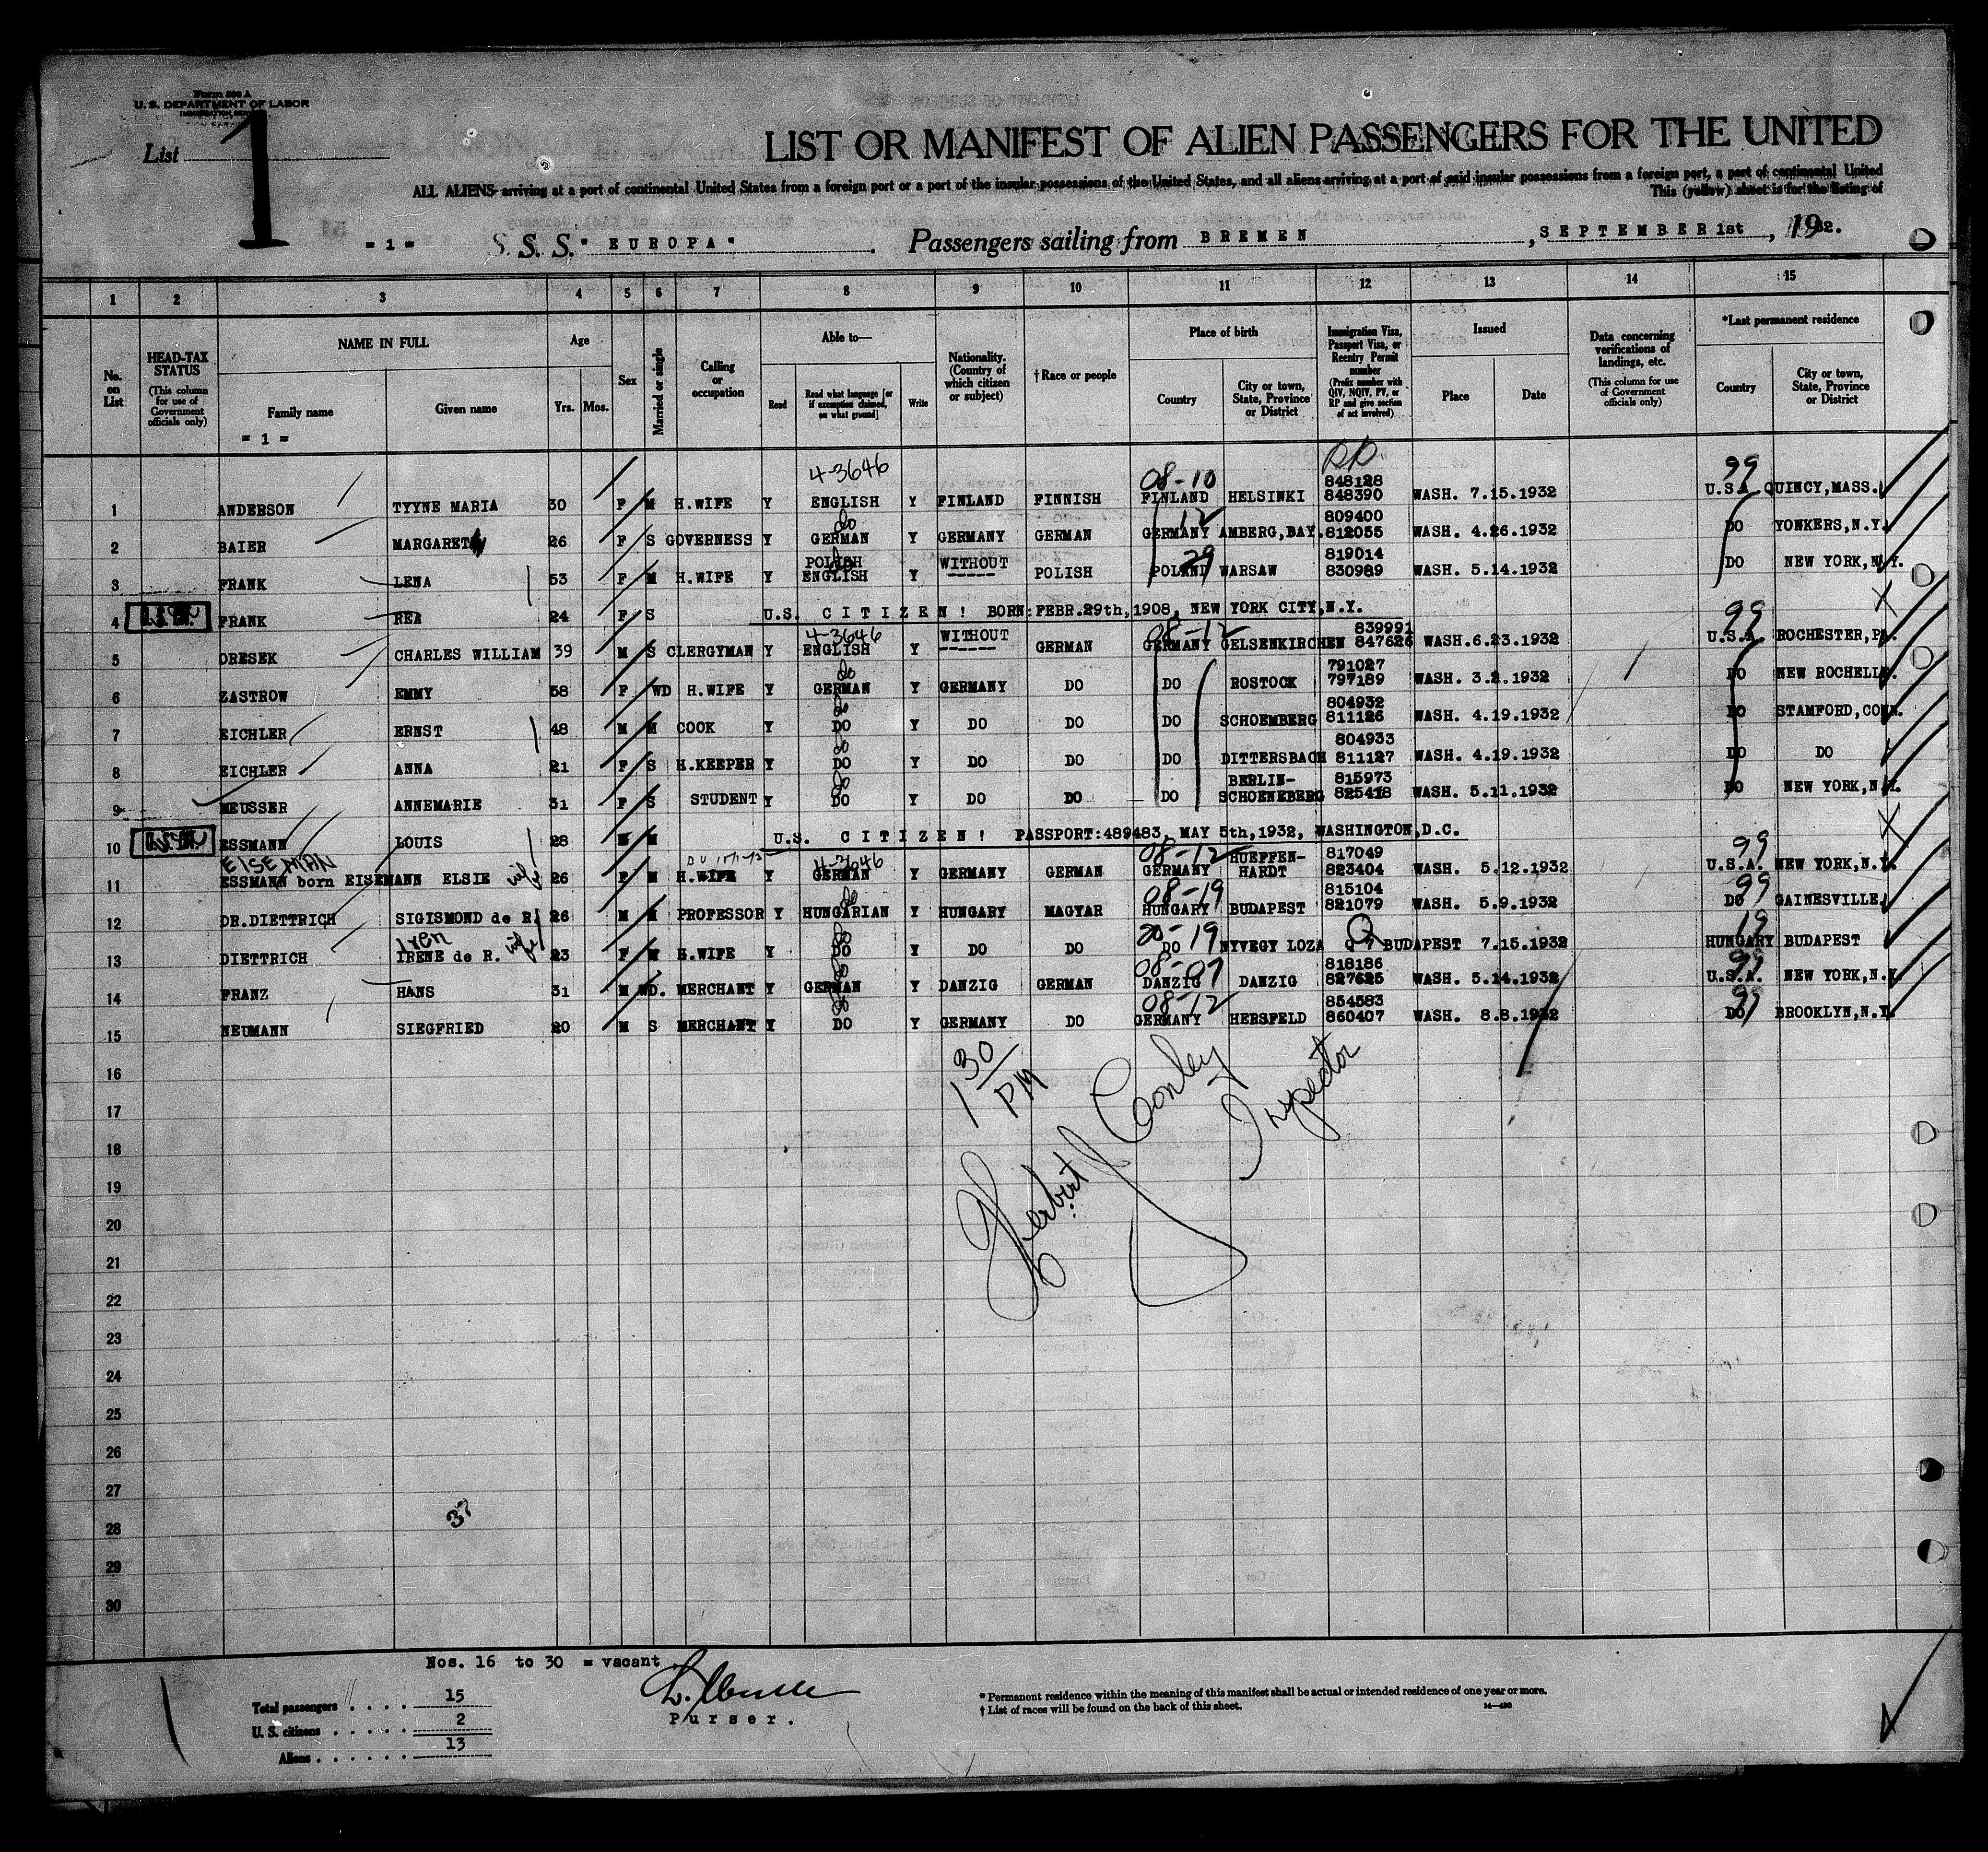 Form 500 A
U. S. DEPARTMENT OF LABOR
List 1
LIST OR MANIFEST OF ALIEN PASSENGERS FOR THE UNITED
ALL ALIENS arriving at a port of continental United States from a foreign port or a port of the insular possessions of the United States, and all aliens arriving at a port of said insular possessions from a foreign port, a port of continental United
This (yellow) sheet is for the listing of
= 1 = S. S. S. "EUROPA". Passengers sailing from BREMEN, SEPTEMBER 1st, 1932.
1 2 3 4 5 6 7 8 9 10 11 12 13 14 15
No. on List
HEAD-TAX STATUS (This column for use of Government officials only)
NAME IN FULL Family name Given name
Age Yrs. Mos.
Sex
Married or single
Calling or occupation
Able to— Read Read what language [or if exemption claimed, on what ground] Write
Nationality. (Country of which citizen or subject)
† Race or people
Place of birth Country City or town, State, Province or District
Immigration Visa, Passport Visa, or Reentry Permit number (Prefix number with QIV, NQIV, PV, or RP and give section of act involved)
Issued Place Date
Data concerning verifications of landings, etc. (This column for use of Government officials only)
*Last permanent residence Country City or town, State, Province or District
= 1 =
4-3646 08-10 RP 99
1 ANDERSON TYYNE MARIA 30 F M H.WIFE Y ENGLISH Y FINLAND FINNISH FINLAND HELSINKI 848128 848390 WASH. 7.15.1932 U.S.A. QUINCY, MASS.
do 12
2 BAIER MARGARET 26 F S GOVERNESS Y GERMAN Y GERMANY GERMAN GERMANY AMBERG, BAY. 809400 812055 WASH. 4.26.1932 DO YONKERS, N.Y.
do 29
3 FRANK LENA 53 F M H.WIFE Y POLISH ENGLISH Y WITHOUT ------ POLISH POLAND WARSAW 819014 830989 WASH. 5.14.1932 DO NEW YORK, N.Y.
4 FRANK REA 24 F S U.S. CITIZEN! BORN: FEBR. 29th, 1908, NEW YORK CITY, N.Y.
4-3646 08-12 99
5 ORESEK CHARLES WILLIAM 39 M S CLERGYMAN Y ENGLISH Y WITHOUT ------ GERMAN GERMANY GELSENKIRCHEN 839991 847626 WASH. 6.23.1932 U.S.A. ROCHESTER, PA.
do
6 ZASTROW EMMY 58 F WD H.WIFE Y GERMAN Y GERMANY DO DO ROSTOCK 791027 797189 WASH. 3.2.1932 DO NEW ROCHELLE.
do
7 EICHLER ERNST 48 M M COOK Y DO Y DO DO DO SCHOEMBERG 804932 811126 WASH. 4.19.1932 DO STAMFORD, CONN.
do
8 EICHLER ANNA 21 F S H.KEEPER Y DO Y DO DO DO DITTERSBACH 804933 811127 WASH. 4.19.1932 DO DO
do
9 MEUSSER ANNEMARIE 31 F S STUDENT Y DO Y DO DO DO BERLIN-SCHOENEBERG 815973 825418 WASH. 5.11.1932 DO NEW YORK, N.Y.
10 ESSMANN LOUIS 28 M M U.S. CITIZEN! PASSPORT: 489483, MAY 5th, 1932, WASHINGTON, D.C.
EISEMAN 4-3646 08-12 99
11 ESSMANN born EISEMANN ELSIE wife 26 F M H.WIFE Y GERMAN Y GERMANY GERMAN GERMANY HUEFFEN-HARDT 817049 823404 WASH. 5.12.1932 U.S.A. NEW YORK, N.Y.
do 08-19 99
12 DR. DIETTRICH SIGISMOND de R. 26 M M PROFESSOR Y HUNGARIAN Y HUNGARY MAGYAR HUNGARY BUDAPEST 815104 821079 WASH. 5.9.1932 DO GAINESVILLE.
Iren do 20-19 Q 19
13 DIETTRICH IRENE de R. wife 23 F M H.WIFE Y DO Y DO DO DO NYVEGY LOZA Q 7 BUDAPEST 7.15.1932 HUNGARY BUDAPEST
do 08-07 99
14 FRANZ HANS 31 M WD. MERCHANT Y GERMAN Y DANZIG GERMAN DANZIG DANZIG 818186 827625 WASH. 5.14.1932 U.S.A. NEW YORK, N.Y.
do 08-12 99
15 NEUMANN SIEGFRIED 20 M S MERCHANT Y DO Y GERMANY DO GERMANY HERSFELD 854583 860407 WASH. 8.8.1932 DO BROOKLYN, N.Y.
16
17
18
19
20
21
22
23
24
25
26
27
28
29
30
1 30 PM
Herbert J Conley
Inspector
37
Nos. 16 to 30 = vacant
Total passengers . . . . 15
U. S. citizens . . . . . 2
Aliens . . . . . . 13
Purser.
* Permanent residence within the meaning of this manifest shall be actual or intended residence of one year or more.
† List of races will be found on the back of this sheet.